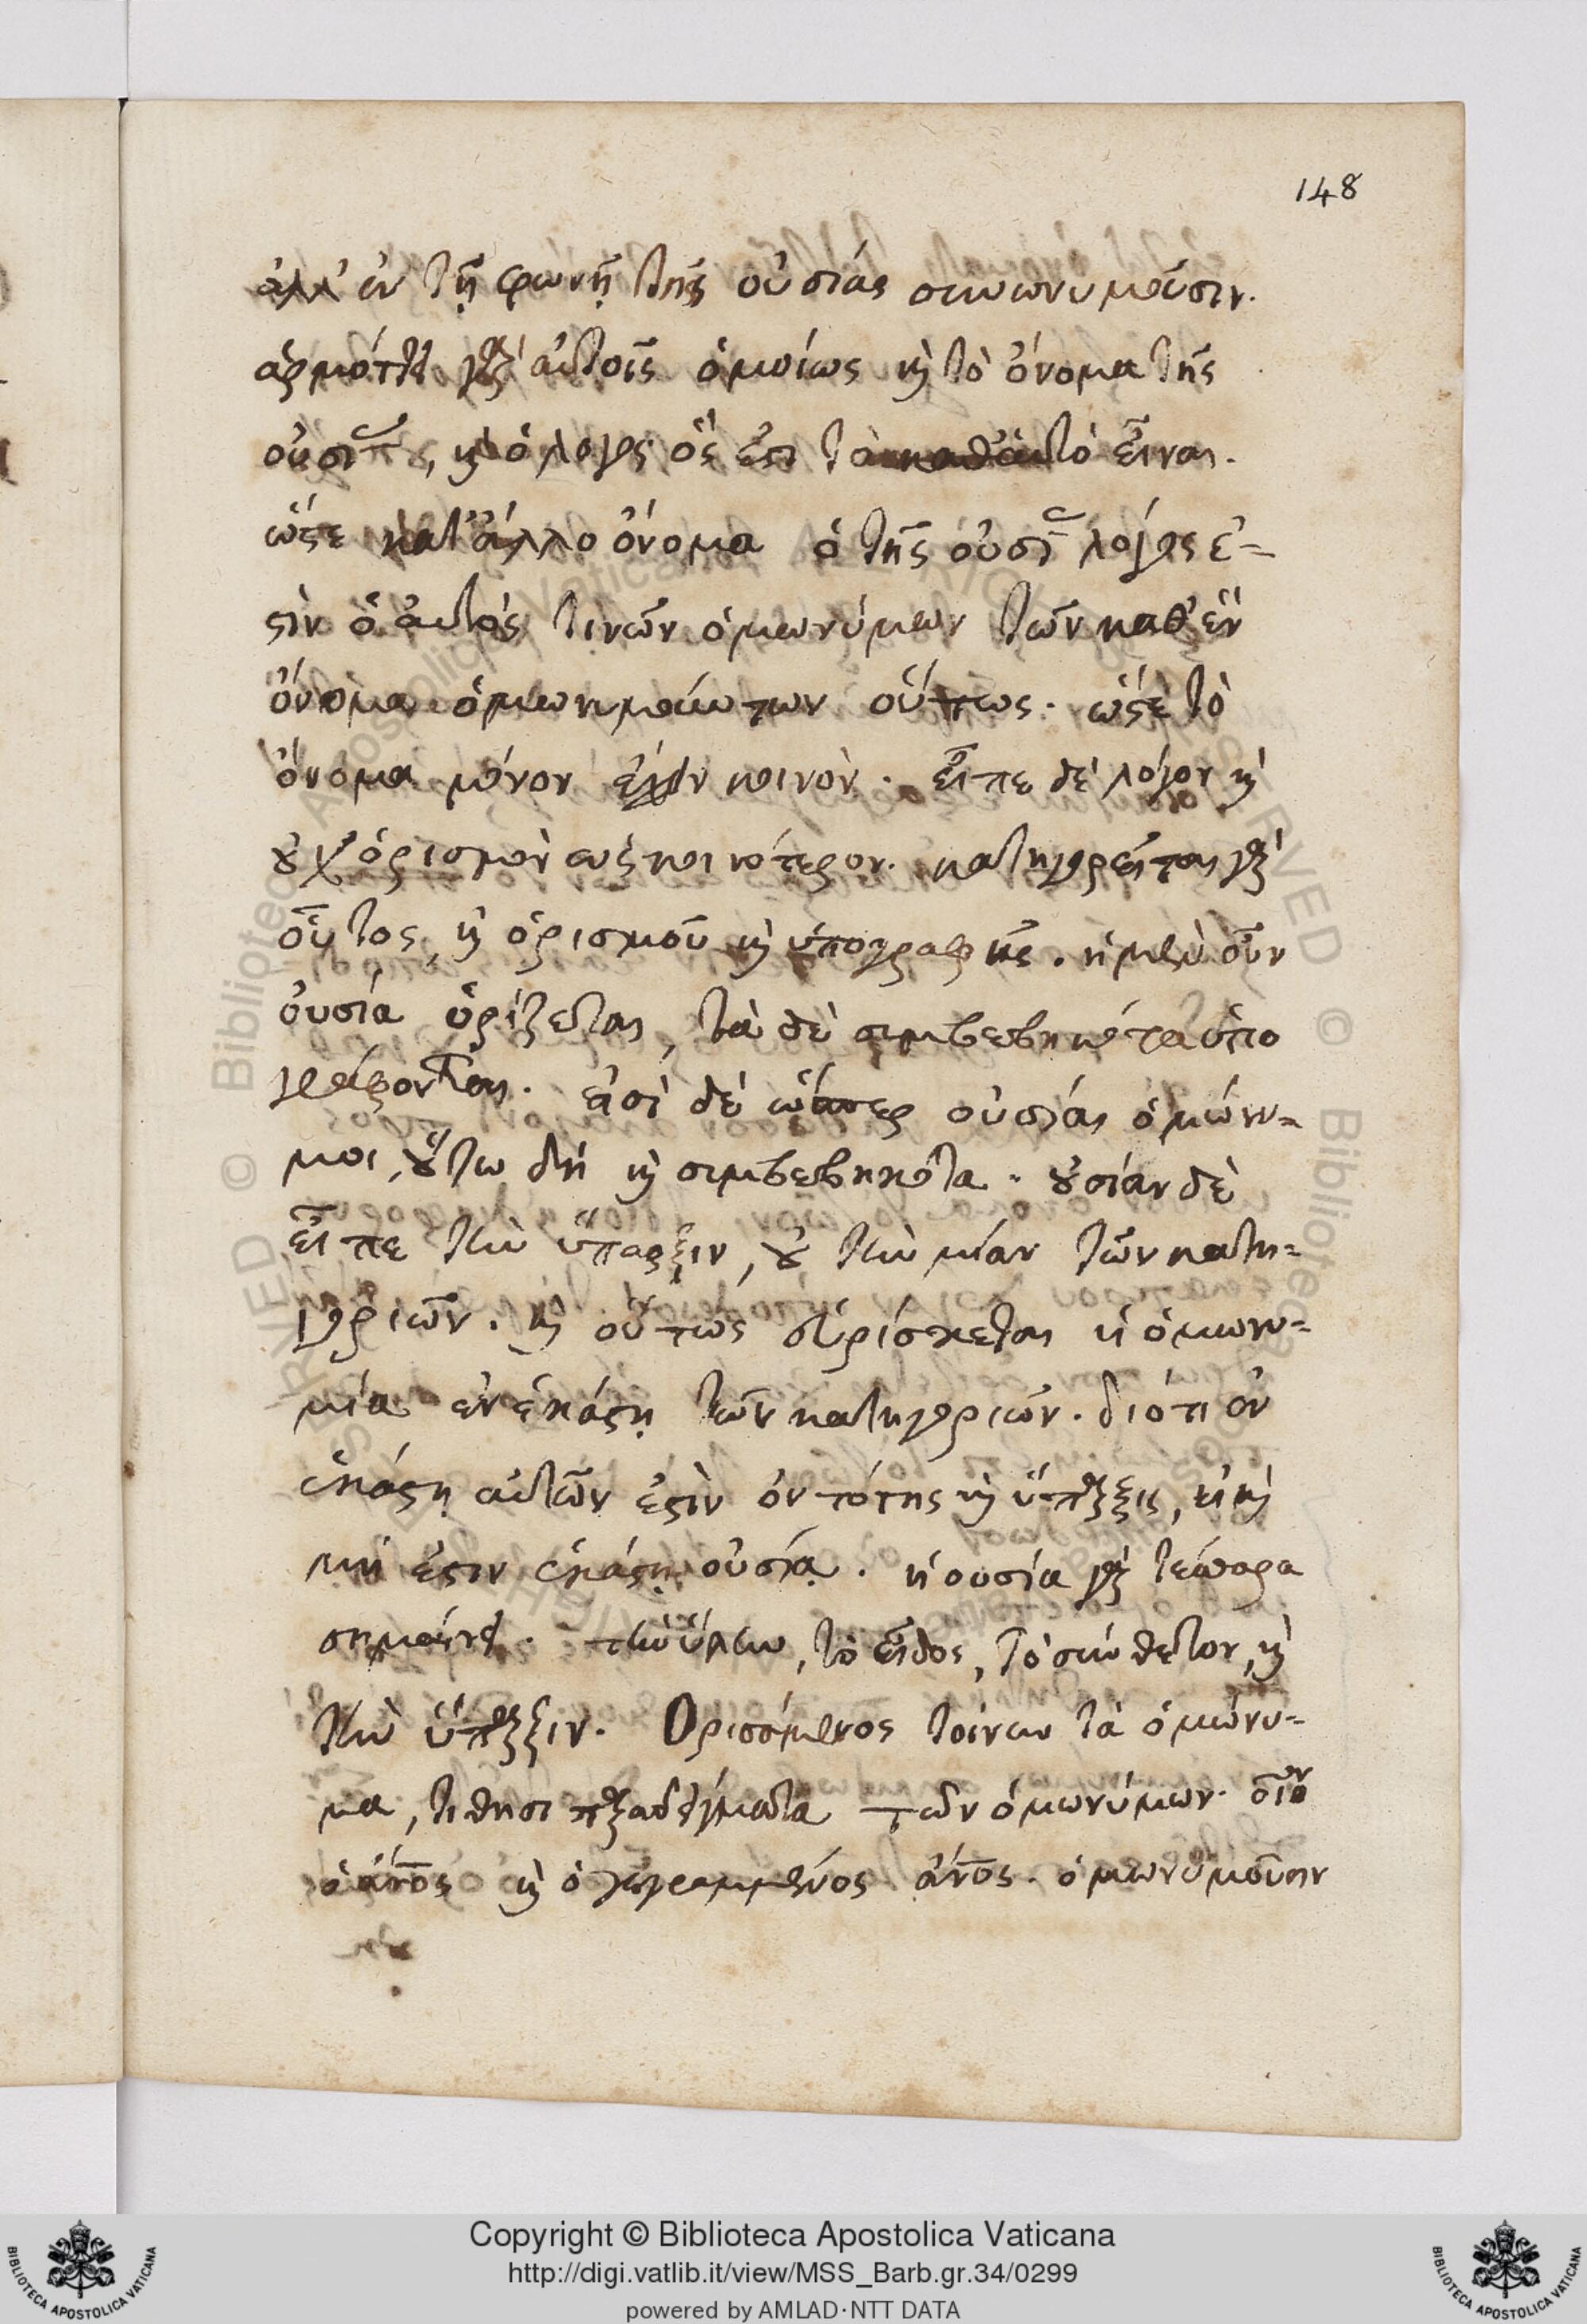 148
ἀλλ' ἐν τῇ φωνῇ τῆς οὐσίας συνωνυμοῦσιν.
ἁρμόττει γὰρ αὐτοῖς ὁμοίως καὶ τὸ ὄνομα τῆς
οὐσίας, καὶ ὁ λόγος ὅς ἐστι τὸ καθ' αὑτὸ εἶναι.
ὥστε κατ' ἄλλο ὄνομα ὁ τῆς οὐσίας λόγος ἐ-
στὶν ὁ αὐτὸς τινῶν ὁμωνύμων τῶν καθ' ἓν
ὄνομα ὁμωνυμούντων οὕτως. ὥστε τὸ
ὄνομα μόνον κοινὸν. εἶπε δὲ λόγον καὶ
οὐχ ὁρισμὸν ὡς κοινότερον. κατηγορεῖται γὰρ
οὗτος, καὶ ὁρισμοῦ καὶ ὑπογραφῆς. ἡ μὲν οὖν
οὐσία ὁρίζεται, τὰ δὲ συμβεβηκότα ὑπο
γράφονται. εἰσὶ δὲ ὥσπερ οὐσίαι ὁμώνυ-
μοι, οὕτω δὴ καὶ συμβεβηκότα. οὐσίαν δὲ
εἶπε τὴν ὕπαρξιν, οὐ τὴν μίαν τῶν κατη-
γοριῶν. καὶ οὕτως εὑρίσκεται ἡ ὁμωνυ-
μία ἐν ἑκάστῃ τῶν κατηγοριῶν. διότι ἐν
ἑκάστῃ αὐτῶν ἐστὶν ὀντότης καὶ ὕπαρξις, εἰ καὶ
μή ἐστιν ἑκάστη οὐσία. ἡ οὐσία γὰρ τέσσαρα
σημαίνει. τὴν ὕλην, τὸ εἶδος, τὸ σύνθετον, καὶ
τὴν ὕπαρξιν. Ορισάμενος τοίνυν τὰ ὁμώνυ-
μα, τίθησι παραδείγματα τῶν ὁμωνύμων. οἷον
ὁ ἄνος καὶ ὁ γεγραμμένος ἄνος. ὁμωνυμοῦσιν
Copyright © Biblioteca Apostolica Vaticana
http://digi.vatlib.it/view/MSS_Barb.gr.34/0299
powered by AMLAD·NTT DATA